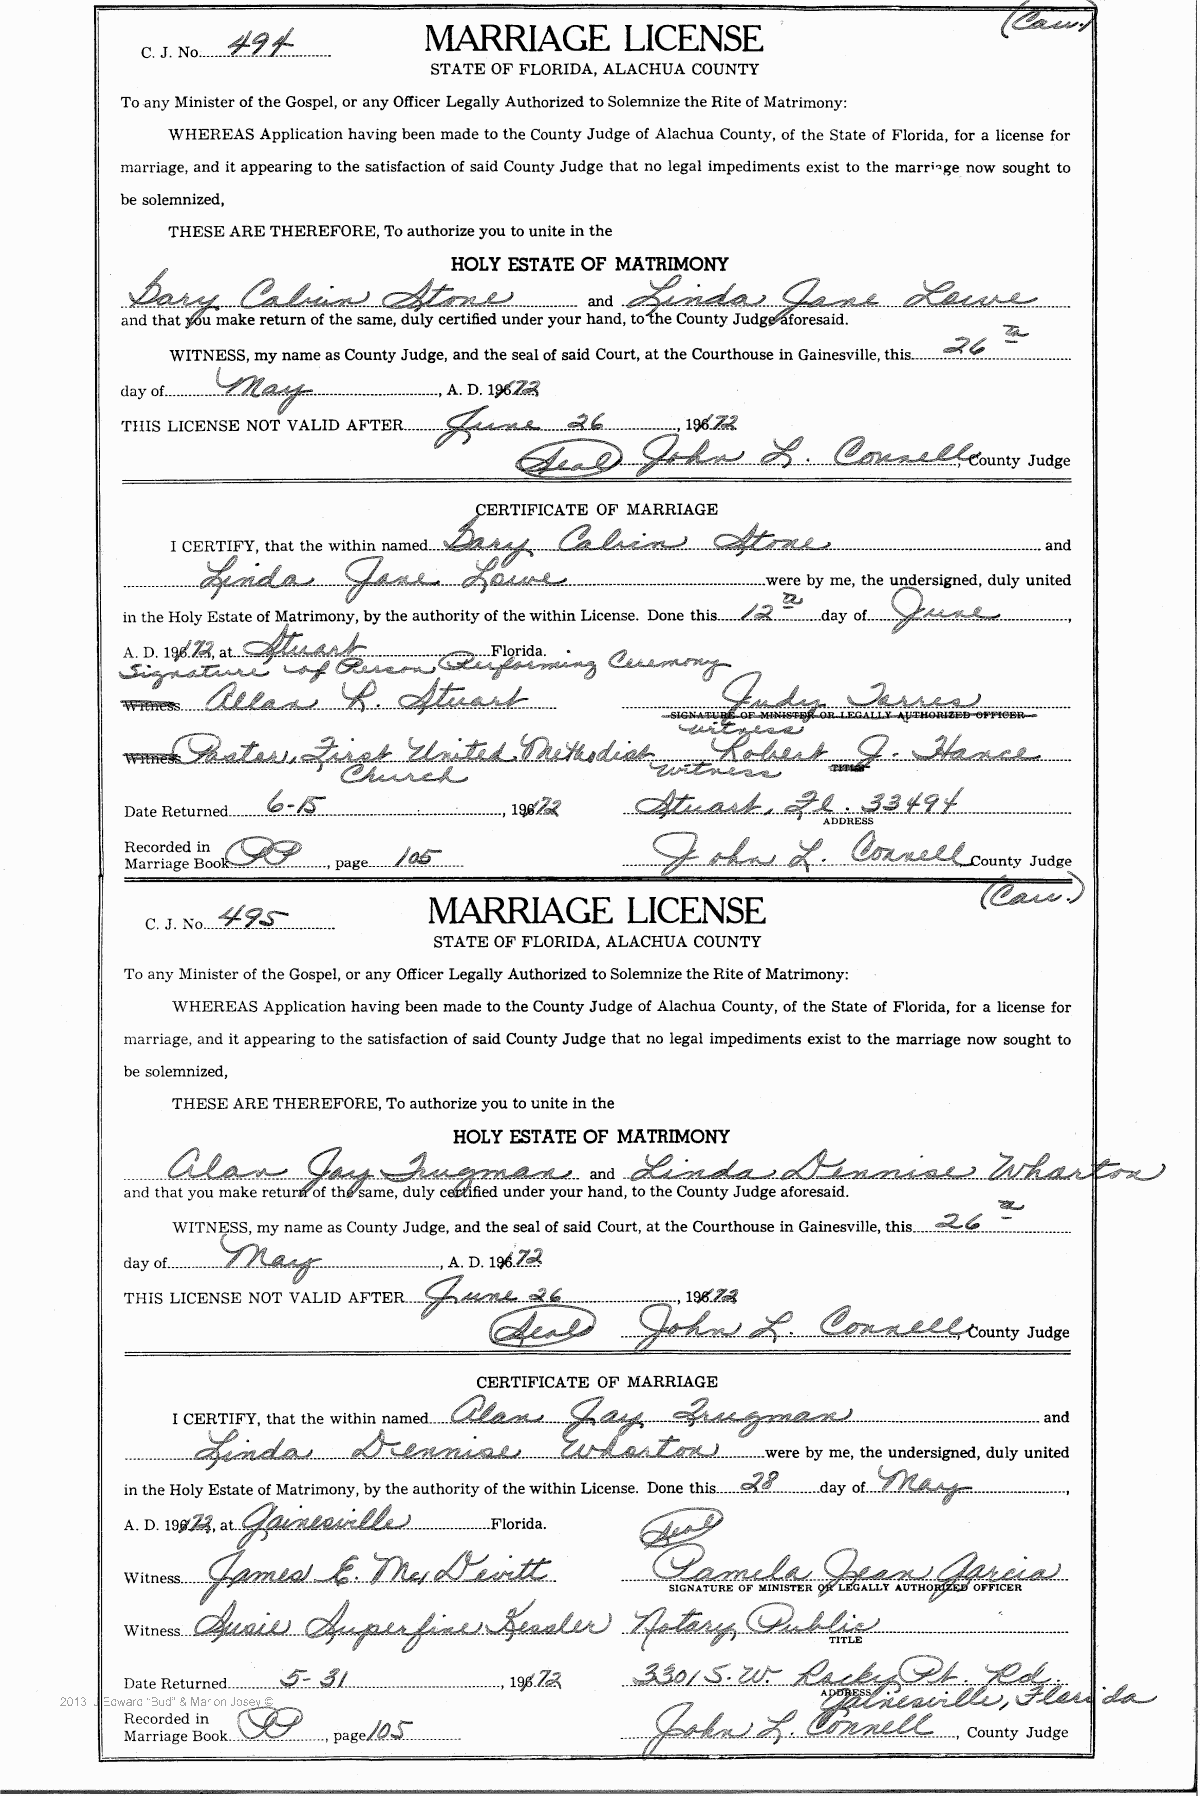 (Cau.)
C. J. No. 494 MARRIAGE LICENSE
STATE OF FLORIDA, ALACHUA COUNTY
To any Minister of the Gospel, or any Officer Legally Authorized to Solemnize the Rite of Matrimony:
WHEREAS Application having been made to the County Judge of Alachua County, of the State of Florida, for a license for
marriage, and it appearing to the satisfaction of said County Judge that no legal impediments exist to the marriage now sought to
be solemnized,
THESE ARE THEREFORE, To authorize you to unite in the
HOLY ESTATE OF MATRIMONY
Gary Calvin Stone and Linda Jane Lowe
and that you make return of the same, duly certified under your hand, to the County Judge aforesaid.
WITNESS, my name as County Judge, and the seal of said Court, at the Courthouse in Gainesville, this 26th
day of May, A. D. 1972
THIS LICENSE NOT VALID AFTER June 26, 1972
(Seal) John L. Connell, County Judge
CERTIFICATE OF MARRIAGE
I CERTIFY, that the within named Gary Calvin Stone and
Linda Jane Lowe were by me, the undersigned, duly united
in the Holy Estate of Matrimony, by the authority of the within License. Done this 12th day of June,
A. D. 1972, at Stuart Florida.
Signature of Person Performing Ceremony
Witness Allan R. Stuart Judy Torres
SIGNATURE OF MINISTER OR LEGALLY AUTHORIZED OFFICER
witness
Witness Pastor, First United Methodist Robert J. Hance
Church witness TITLE
Date Returned 6-15, 1972 Stuart, Fl. 33494
ADDRESS
Recorded in
Marriage Book PP, page 105 John L. Connell County Judge
(Cau.)
C. J. No. 495 MARRIAGE LICENSE
STATE OF FLORIDA, ALACHUA COUNTY
To any Minister of the Gospel, or any Officer Legally Authorized to Solemnize the Rite of Matrimony:
WHEREAS Application having been made to the County Judge of Alachua County, of the State of Florida, for a license for
marriage, and it appearing to the satisfaction of said County Judge that no legal impediments exist to the marriage now sought to
be solemnized,
THESE ARE THEREFORE, To authorize you to unite in the
HOLY ESTATE OF MATRIMONY
Alan Jay Trugman and Linda Dennise Wharton
and that you make return of the same, duly certified under your hand, to the County Judge aforesaid.
WITNESS, my name as County Judge, and the seal of said Court, at the Courthouse in Gainesville, this 26th
day of May, A. D. 1972
THIS LICENSE NOT VALID AFTER June 26, 1972
(Seal) John L. Connell, County Judge
CERTIFICATE OF MARRIAGE
I CERTIFY, that the within named Alan Jay Trugman and
Linda Dennise Wharton were by me, the undersigned, duly united
in the Holy Estate of Matrimony, by the authority of the within License. Done this 28 day of May,
A. D. 1972, at Gainesville Florida. (Seal)
Witness James E. McDevitt Pamela Jean Garcia
SIGNATURE OF MINISTER OR LEGALLY AUTHORIZED OFFICER
Witness Susie Superfine Kessler Notary Public
TITLE
Date Returned 5-31, 1972 3301 S.W. Rocky Pt. Rd.
ADDRESS Gainesville, Florida
2013 J Edward "Bud" & Marion Josey ©
Recorded in
Marriage Book PP, page 105 John L. Connell, County Judge